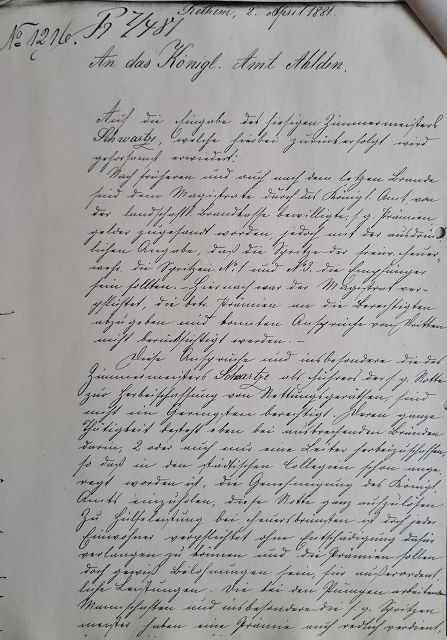 Rethem, 2. April 1881.
No 1216. Pr 7/4 81
An das Königl. Amt Ahlden.
Auf die Eingabe des hiesigen Zimmermeisters
Schwartze, welche hierbei zurückerfolgt wird
gehorsamst erwiedert:
Nach früheren und auch nach dem letzten Brande
sind dem Magistrate durch das Königl. Amt von
der landschaftl. Brandkasse bewilligte, s. g. Prämien
gelder zugesandt worden, jedoch mit der ausdrück
lichen Angabe, daß die Spritze der freiw. Feuer
wehr, die Spritzen No 1 und No 3. die Empfänger
sein sollten. – Hiernach war der Magistrat ver-
pflichtet, die betr. Prämien an die Berechtigten
abzugeben und konnten Ansprüche von Dritten
nicht berücksichtigt werden. –
Diese Ansprüche und insbesondere die des
Zimmermeisters Schwartze als Führers der s. g. Rotte
zur Herbeischaffung von Rettungsgeräthen, sind
nicht im Geringsten berechtigt. Deren ganze
Thätigkeit besteht eben bei ausbrechenden Bränden
darin, 2 oder auch nur eine Leiter herbeizuschaffen,
so daß in den städtischen Collegien schon ange
regt worden ist, die Genehmigung des Königl.
Amts einzuholen, diese Rotte ganz aufzulösen
Zu Hülfeleistung bei Feuersbrünsten ist doch jeder
Einwohner verpflichtet ohne Entschädigung dafür
verlangen zu können und die Prämien sollen
doch gewiß Belohnungen sein für außerordent
liche Leistungen. Die bei den Pumpen arbeitenden
Mannschaften und insbesondere die s. g. Spritzen
meister haben eine Prämie auch redlich verdient